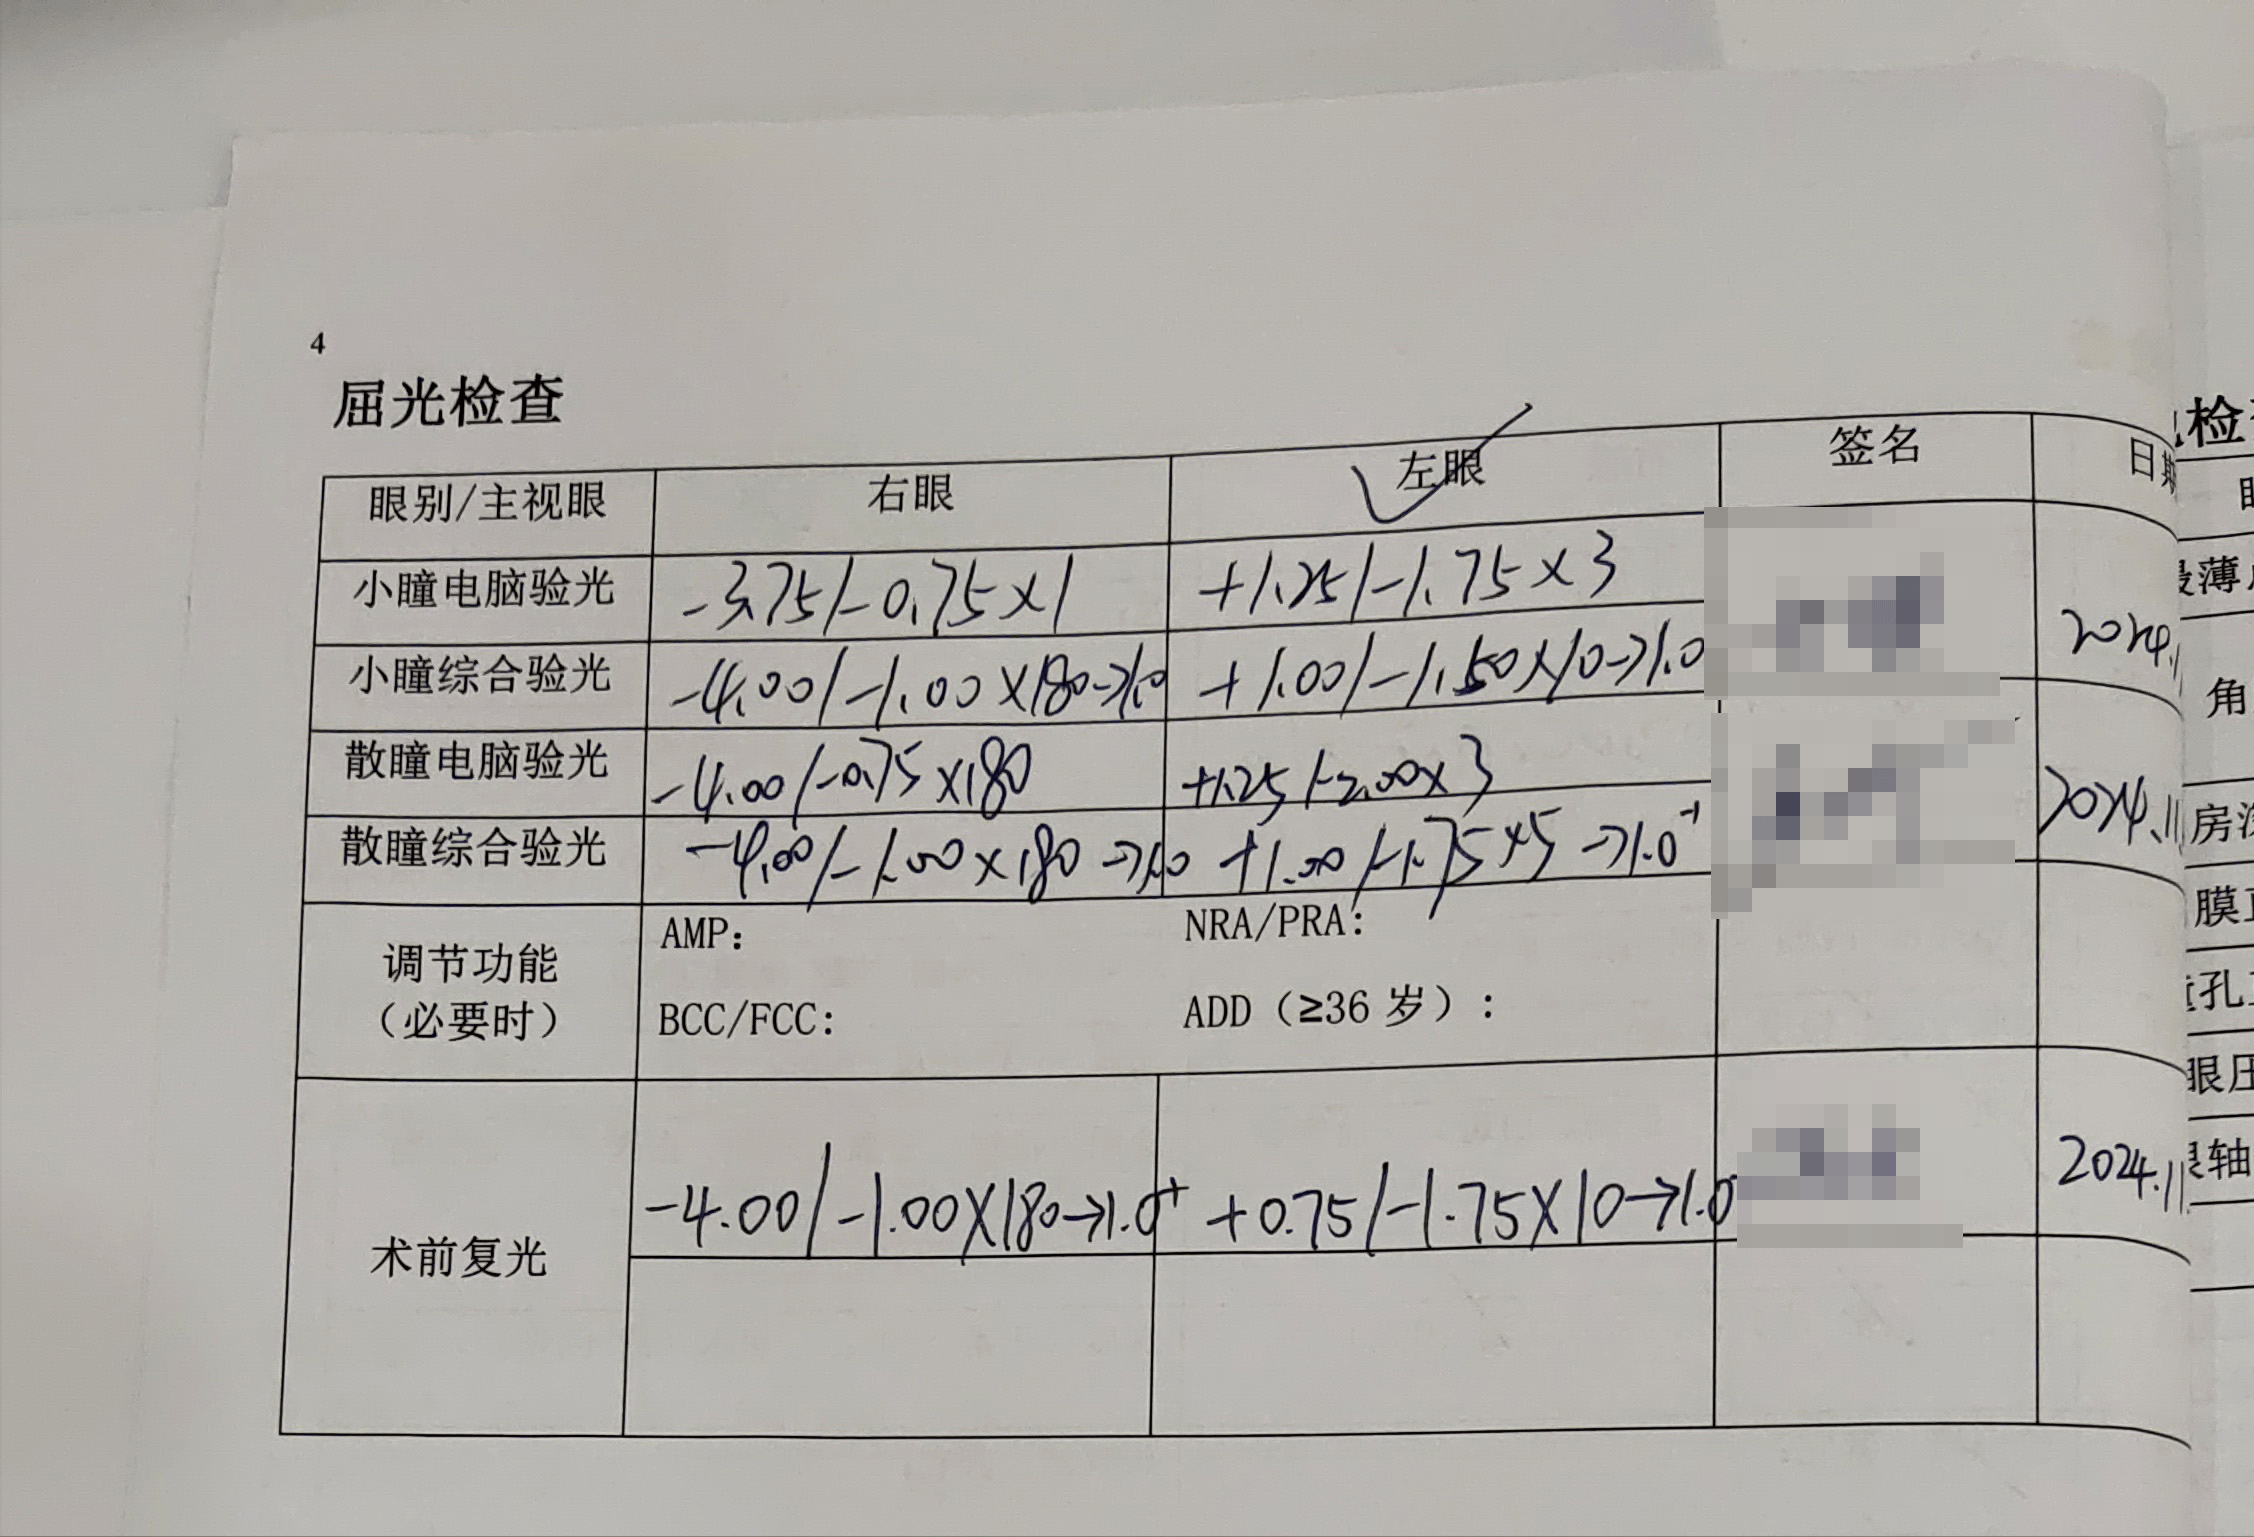 4
屈光检查
眼别/主视眼 右眼 左眼 签名 日期
小瞳电脑验光 -3.75/-0.75×1 +1.25/-1.75×3
小瞳综合验光 -4.00/-1.00×180→1.0 +1.00/-1.50×10→1.0 2024.
散瞳电脑验光 -4.00/-0.75×180 +1.25/-2.00×3
散瞳综合验光 -4.00/-1.00×180→1.0 +1.00/-1.75×5→1.0⁻¹ 2024.11
调节功能
(必要时)
AMP: NRA/PRA:
BCC/FCC: ADD（≥36 岁）:
术前复光 -4.00/-1.00×180→1.0⁺ +0.75/-1.75×10→1.0 2024.11
检
薄
角
房
膜
孔
眼
轴